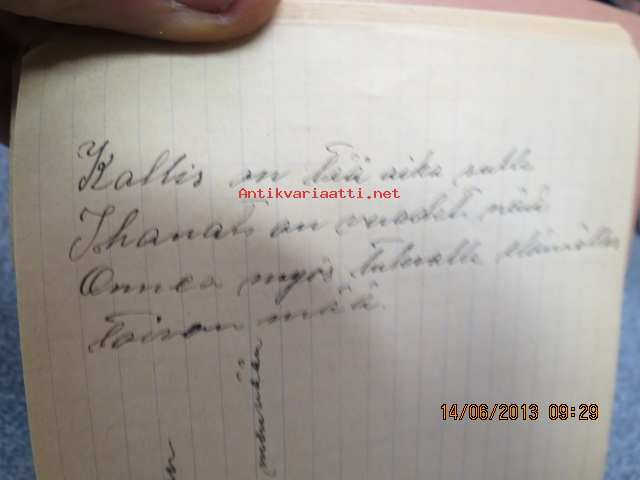 Kallis on tää aika sulle
Antikvariaatti.net
Ihanat on vuodet nää
Onnea myös tulevalle elämälles
toivon mää.
14/06/2013 09:29